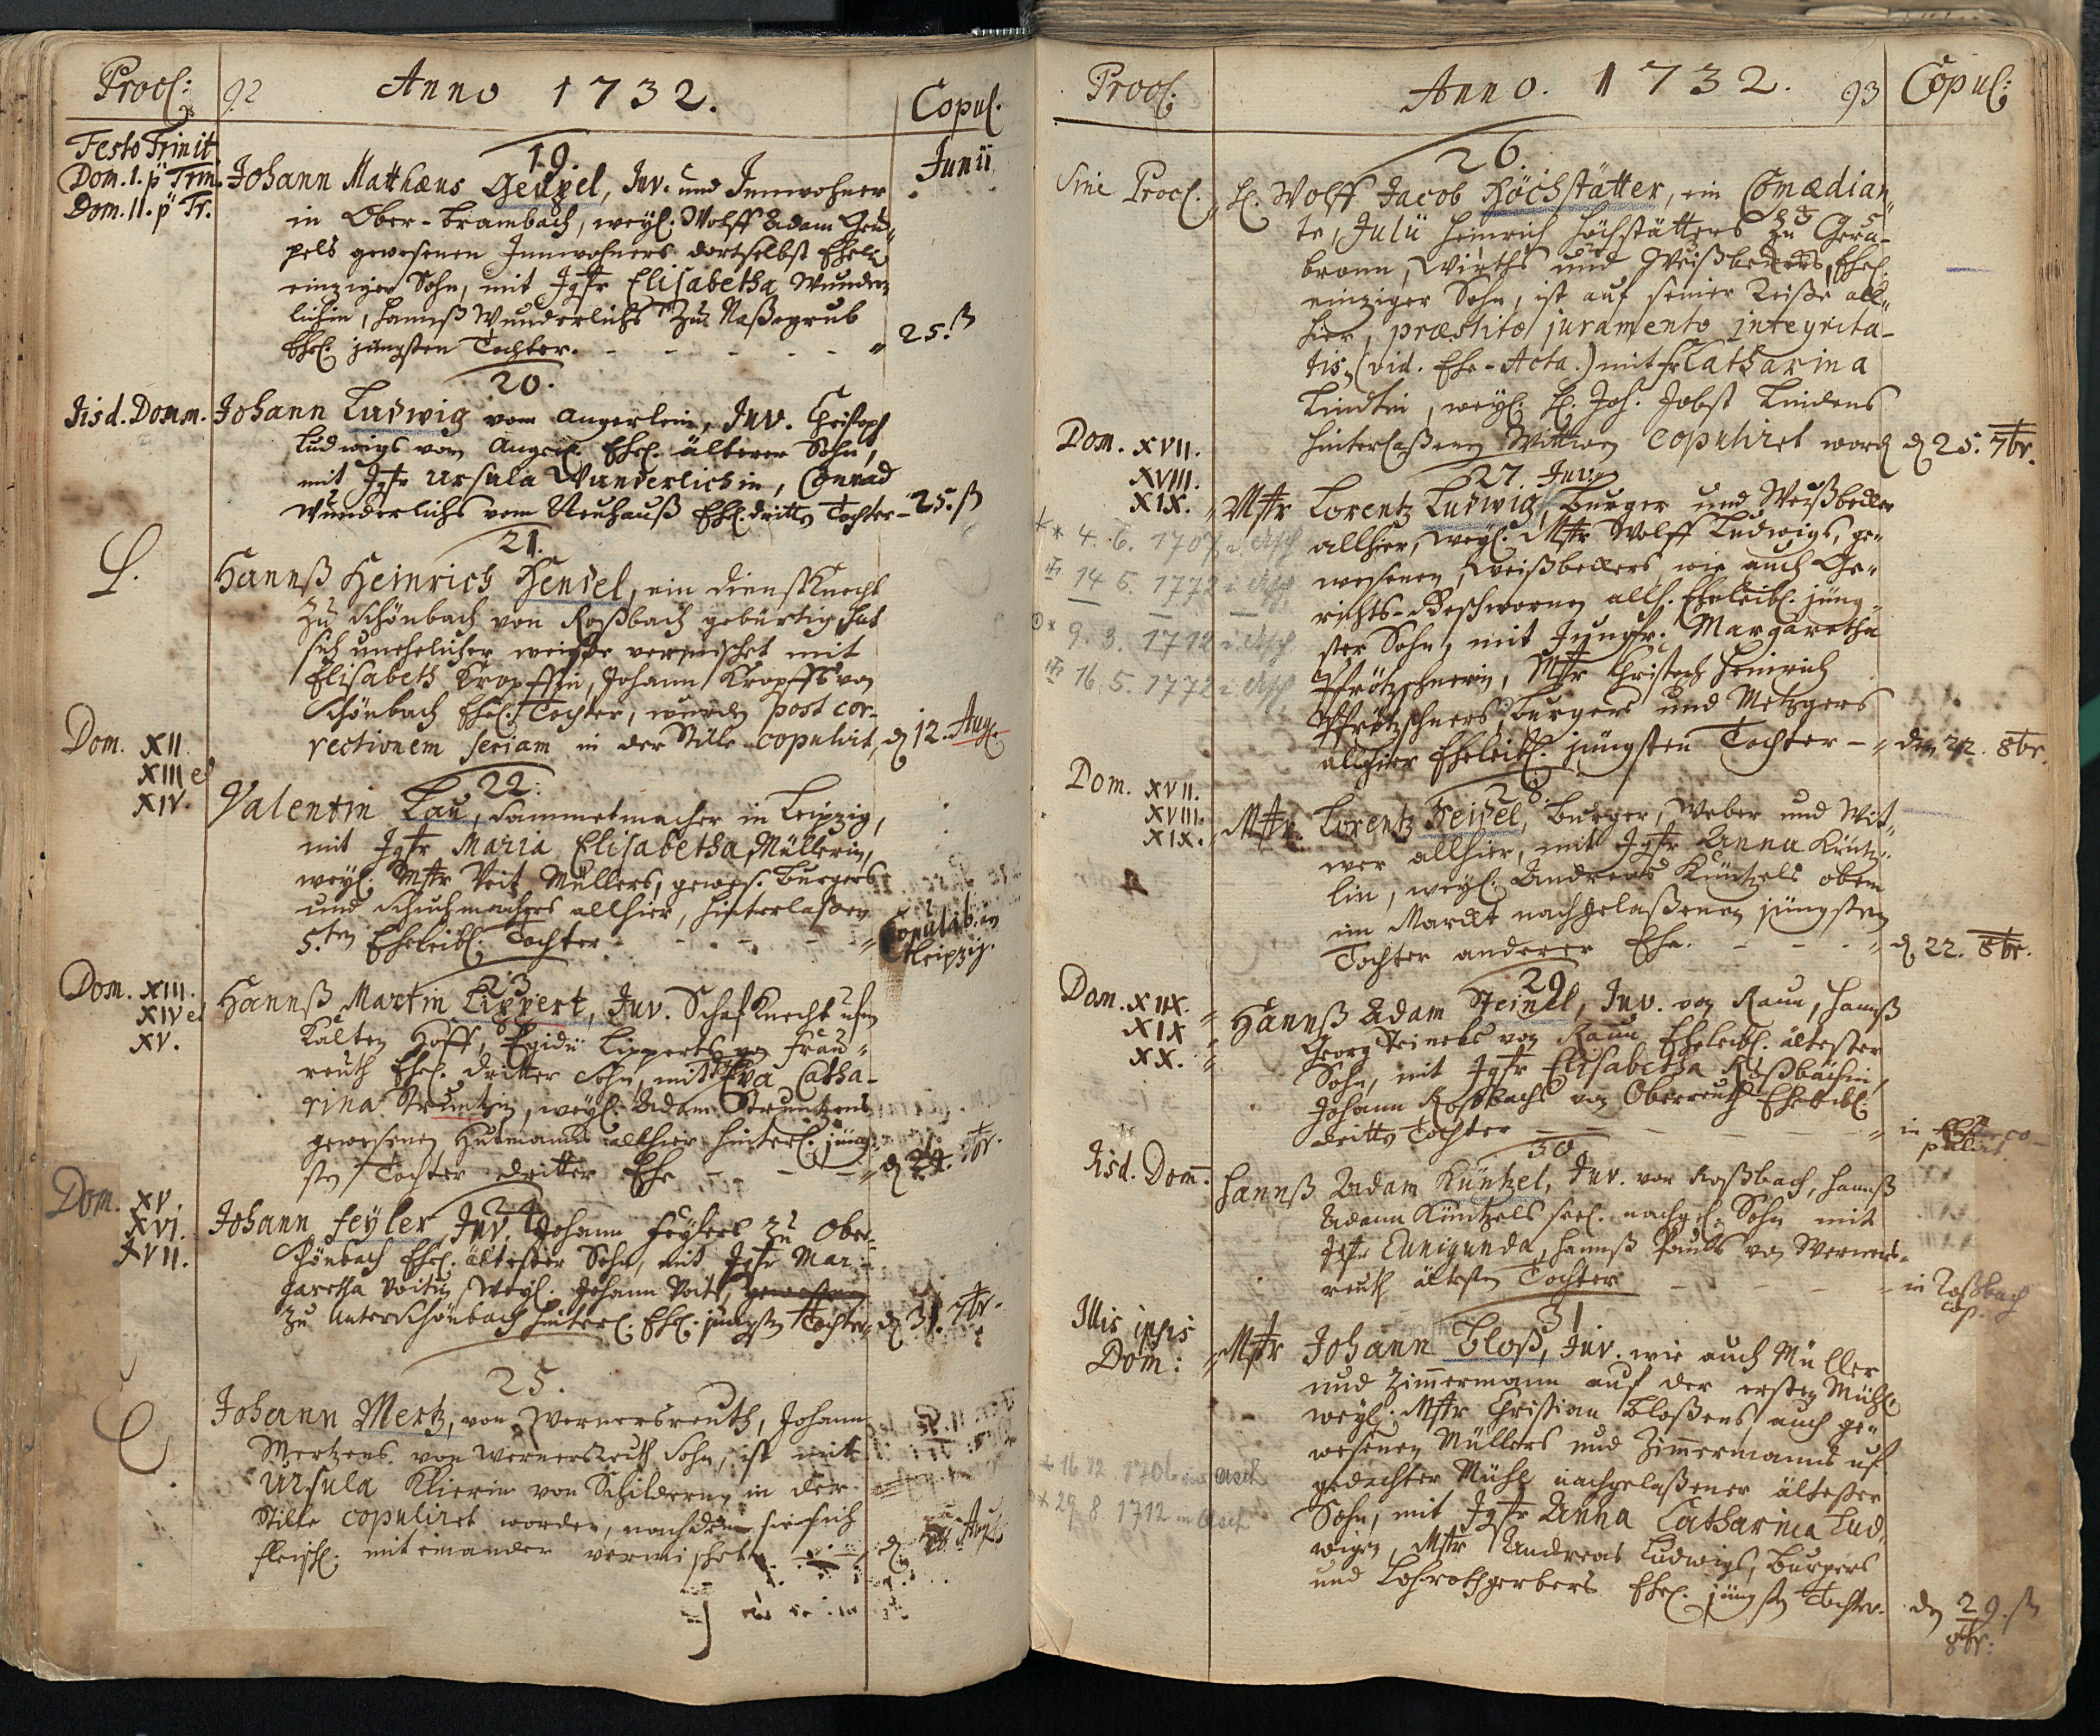 Procl: 92 Anno 1732. Copul.
Festo Trinit.
Dom. I. p. Trin.
Dom. II. p. Tr.
Junii
19.
Johann Matthæus Geüpel, Juv. und Innwohner
in Ober-Brambach, weyl. Wolff Adam Geü-
pels gewesenen Innwohners dortselbst Ehel.
einziger Sohn, mit Jgfr Elisabetha Wunder-
lichin, Hannß Wunderlichs zu Naßegrub
Ehel. jüngsten Tochter. - - - - 25. ß
20.
Iisd. Domm. Johann Ludwig vom Angerlein, Juv. Christoph
Ludwigs vom Angerl. Ehel. älterer Sohn,
mit Jgfr Ursula Wunderlichin, Conrad
Wunderlichs vom Neuhauß Ehel. dritte Tochter - 25. ß
21.
Hannß Heinrich Hendel, ein Dienstknecht
zu Schönbach von Roßbach gebürtig, hat
sich unehelicher weiße vermischet mit
Elisabeth Kropffin, Johann Kropffs von
Schönbach Ehel. Tochter, wurden post cor-
rectionem seriam in der Stille copulirt, d 12. Aug.
22.
Dom. XII
XIII et
XIV.
Valentin Lau, Sammetmacher in Leipzig,
mit Jgfr Maria Elisabetha Müllerin,
weyl. Mstr Veit Müllers, gewes. Burgers
und Schuhmachers allhier, hinterlaßen
5.ten Eheleibl. Tochter - - - Copulat. in
Leipzig.
23.
Dom. XIII.
XIV et
XV.
Hannß Martin Lippert, Juv. Schaf Knecht ufm
Kalten Hoff, Egidii Lipperts von Frau-
reuth Ehel. dritter Sohn, mit Eva Catha-
rina Struntzin, weyl. Adam Struntzens
gewesenen Hutmanns allhier hinterl. jüng-
sten Tochter dritter Ehe - - -
24.
Dom. XV.
XVI.
XVII.
Johann Feyler, Juv. Johann Feylers zu Ober-
Schönbach Ehel. ältester Sohn, mit Jgfr Mar-
garetha Voitin, weyl. Johann Voits,
zu Unterschönbach hinterl. Ehel. jüngsten Tochter d 31. 7br.
25.
Johann Mertz, von Wernersreuth, Johann
Mertzens von Wernersreuth Sohn, ist mit
Ursula Klierin von Schildern in der
Stille copuliret worden, nachdem sie sich
fleischl. mit einander vermischet.
Procl: Anno. 1732. 93 Copul:
26.
Sine Procl. H. Wolff Jacob Höchstätter, ein Comœdian-
te, Julii Heinrich Höchstätters zu Gera-
bronn, Wirths und Weißbeckens, Ehel.
einziger Sohn, ist auf seiner Reiße all-
hier, præstito juramento integrita-
tis, (vid. Ehe-Acta.) mit Fr Catharina
Lindtin, weyl. H. Joh. Jobst Lindens
hinterlaßenen Wittwen copuliret word. d 25. 7br.
27. Juv.
Dom. XVII.
XVIII.
XIX.
Mstr Lorentz Ludwig, Burger und Weißbeck
allhier, weyl. Mstr Wolff Ludwigs, ge-
wesenen Weißbeckers, wie auch Ge-
richts-Geschwornen allh. Eheleibl. jüng-
ster Sohn, mit Jungfr. Margaretha
Pfrötzschnerin, Mstr Christoph Heinrich
Pfrötzschners Burgers und Metzgers
allhier Eheleibl. jüngsten Tochter - den 22. 8br.
* 4. 6. 1707 i. Asch
14 5. 1772 i. Asch
* 9. 3. 1712 i. Asch
16. 5. 1772 i. Asch
28.
Dom. XVII.
XVIII.
XIX.
Mstr. Lorentz Heisel, Burger, Weber und Wit-
wer allhier, mit Jgfr Anna Küntz-
lin, weyl. Andreas Küntzels oben
im Marckt nachgelaßenen jüngsten
Tochter anderer Ehe. - - - d 22. 8br.
29.
Dom. XIIX.
XIX
XX.
Hannß Adam Steinel, Juv. von Raun, Hannß
Georg Steinels von Raun Eheleibl. ältester
Sohn, mit Jgfr Elisabetha Roßbachin,
Johann Roßbachs von Oberreuth Eheleibl.
dritte Tochter - - - in Elster co-
pulirt.
30.
Iisd. Dom. Hannß Adam Küntzel, Juv. von Roßbach, Hannß
Adam Küntzels seel. nachgel. Sohn mit
Jgfr Cunigunda, Hannß Pauls von Werners-
reuth ältesten Tochter - - - in Roßbach
cop.
31
Illis ipsis
Dom:
Mstr Johann Bloß, Juv. wie auch Müller
und Zimmermann auf der ersten Mühl,
weyl. Mstr Christian Bloßens auch ge-
wesenen Müllers und Zimmermanns uf
gedachter Mühl nachgelaßener ältester
Sohn, mit Jgfr Anna Catharina Lud-
wigin, Mstr Andreas Ludwigs, Burgers
und Lohrothgerbers Ehel. jüngsten Tochter. den 29. ß
8br.
* 16 12 1706 in Asch
* 29 8 1712 in Asch